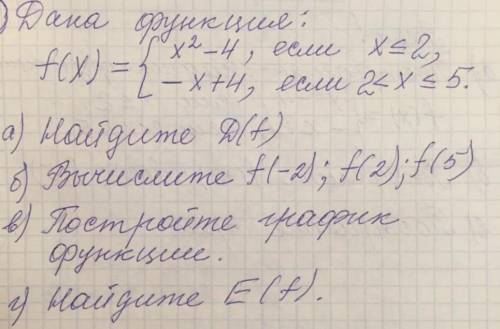 ) Дана функция:
f(x) = { x² - 4, если x ≤ 2,
- x + 4, если 2 < x ≤ 5.
а) Найдите D(f)
б) Вычислите f(-2); f(2); f(5)
в) Постройте график
функции.
г) Найдите E(f).